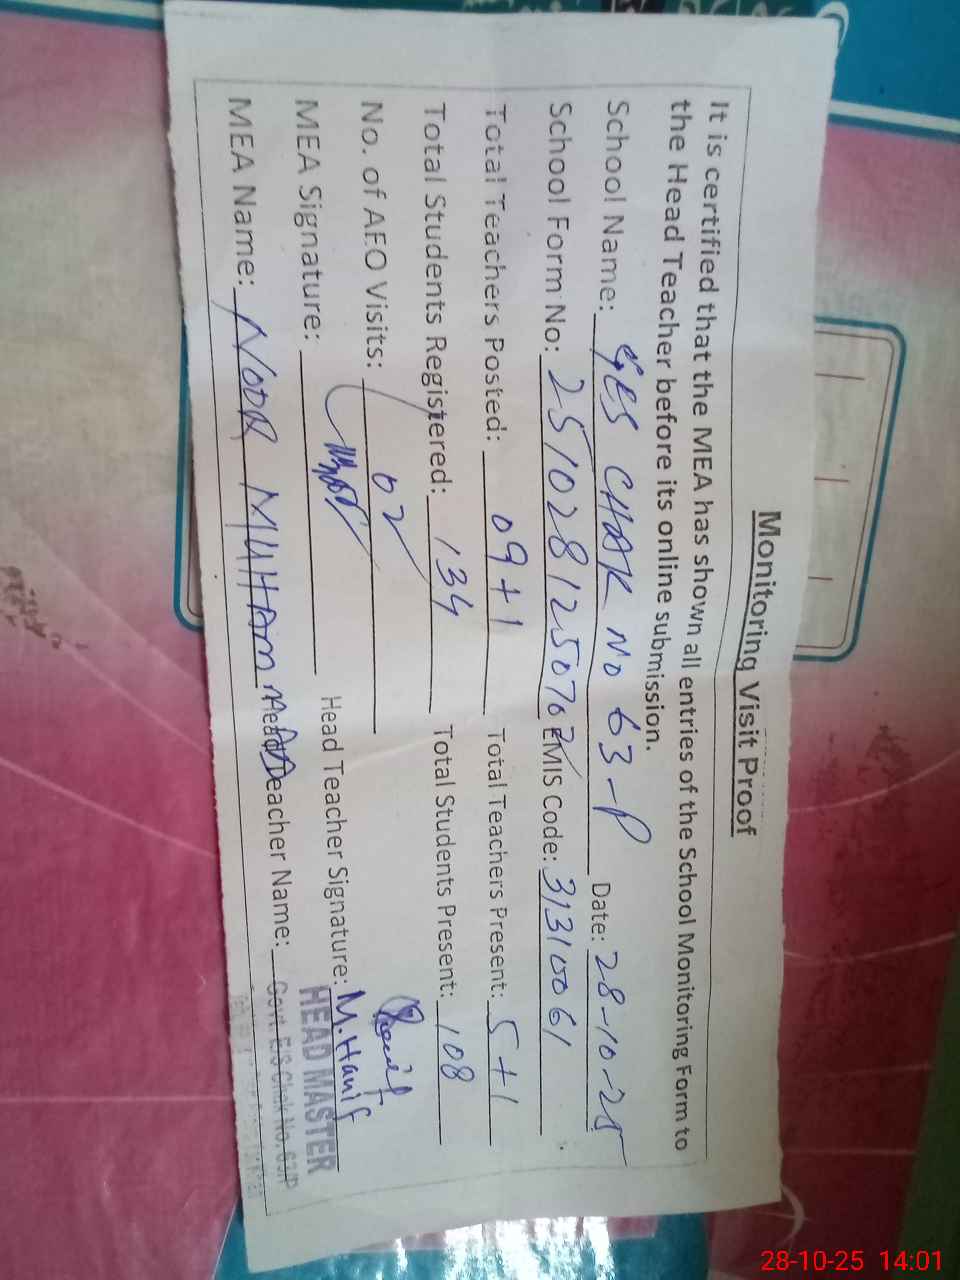 Monitoring Visit Proof
It is certified that the MEA has shown all entries of the School Monitoring Form to
the Head Teacher before its online submission.
School Name: GES CHAK No 63-P Date: 28-10-25
School Form No: 25102812507 EMIS Code: 31310061
Total Teachers Posted: 09+1 Total Teachers Present: 5+1
Total Students Registered: 134 Total Students Present: 108
No. of AEO Visits: 02
MEA Signature: Head Teacher Signature: M. Hanif
HEAD MASTER
MEA Name: NOOR MUHAMMAD Head Teacher Name: Govt. E/S Chak No. 63/P
28-10-25 14:01